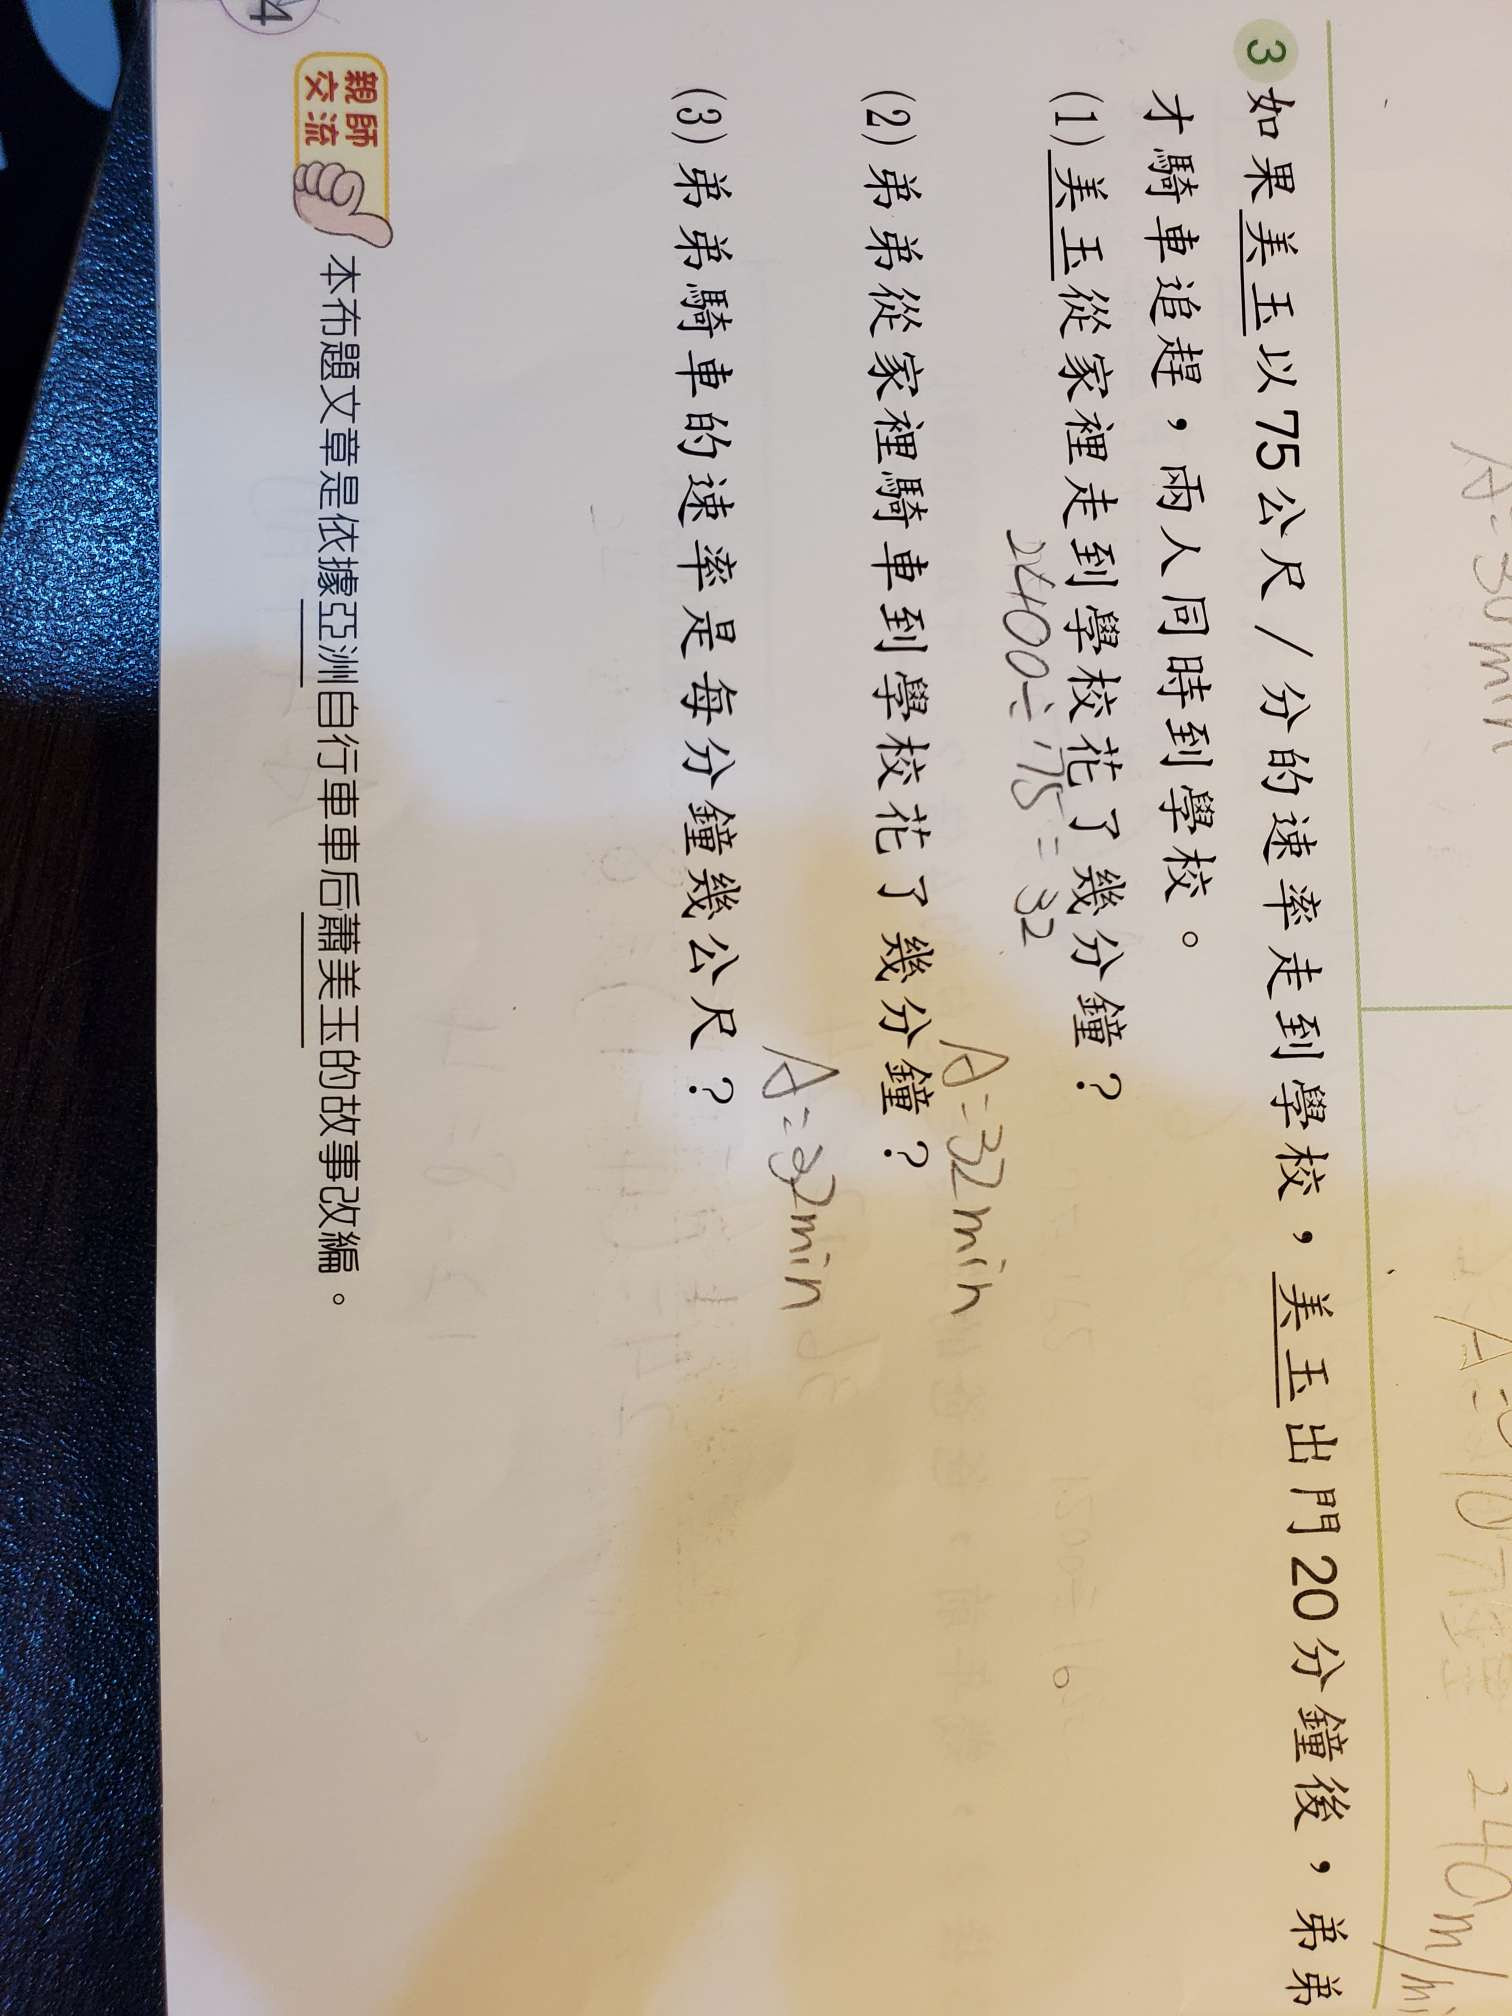 A=30min
A=
240m/mi
3 如果美玉以75公尺/分的速率走到學校，美玉出門20分鐘後，弟弟
才騎車追趕，兩人同時到學校。
(1)美玉從家裡走到學校花了幾分鐘？
2400÷75=32
A=32min
(2)弟弟從家裡騎車到學校花了幾分鐘？
A=32min
(3)弟弟騎車的速率是每分鐘幾公尺？
親師
交流
本布題文章是依據亞洲自行車車后蕭美玉的故事改編。
4